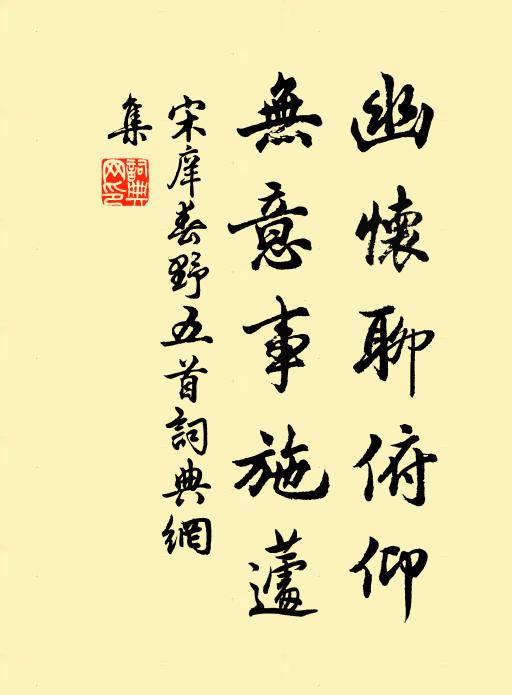 幽懷聊俯仰
無意事施蘧
宋庠春野五首詞典網
集
詞典
網印